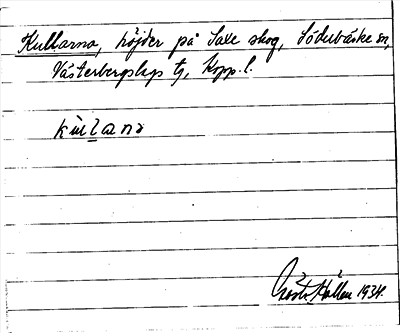 Kullarna, höjder på Saxe skog, Söderbärke sn,
Västerbergslags tg, Kopp. l.
kullana
Gösta Hällen 1934.